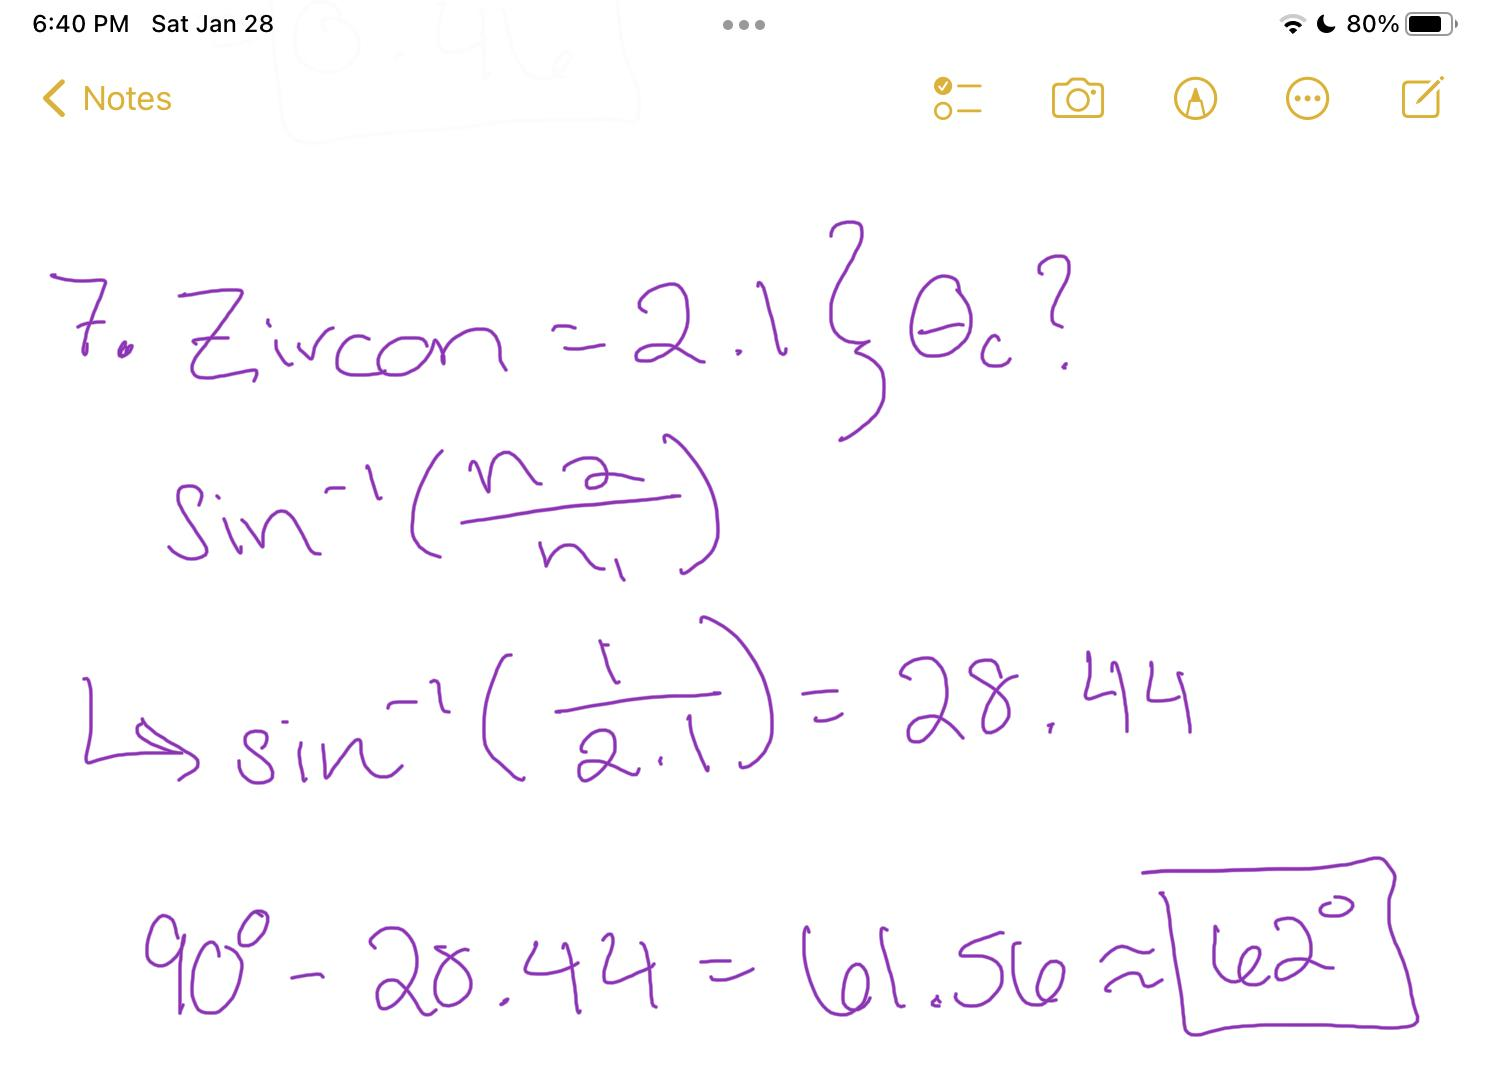 6:40 PM Sat Jan 28
80%
0.46
Notes
7. Zircon = 2.1 } θc?
sin⁻¹(n2/n₁)
↳ sin⁻¹(1/2.1) = 28.44
90° - 28.44 = 61.56 ≈ 62°